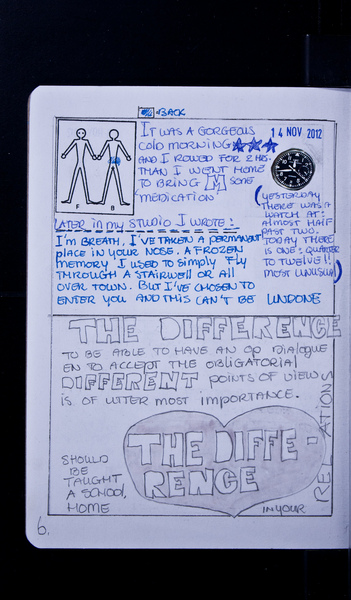 BACK
IT WAS A GORGEOUS
COLD MORNING
AND I ROWED FOR 2 HRS.
THAN I WENT HOME
TO BRING M SOME
"MEDICATION"
14 NOV. 2012
F B
(YESTERDAY
THERE WAS A
WATCH AT:
ALMOST HALF
PAST TWO.
TODAY THERE
IS ONE: QUARTER
TO TWELVE!!
MOST UNUSUAL)
LATER in my STUDIO I WROTE:
I'M BREATH, I'VE TAKEN A PERMANENT
PLACE IN YOUR NOSE. A FROZEN
MEMORY I USED TO SIMPLY FLY
THROUGH A STAIRWELL OR ALL
OVER TOWN. BUT I'VE CHOSEN TO
ENTER YOU AND THIS CAN'T BE UNDONE
THE DIFFERENCE
TO BE ABLE TO HAVE AN OP DIALOGUE
EN TO ACCEPT THE OBLIGATORIAL
DIFFERENT POINTS OF VIEWS
IS OF UTTER MOST IMPORTANCE.
THE DIFFE-
RENCE
SHOULD
BE
TAUGHT
A SCHOOL,
HOME
IN YOUR
RELATIONS
6.